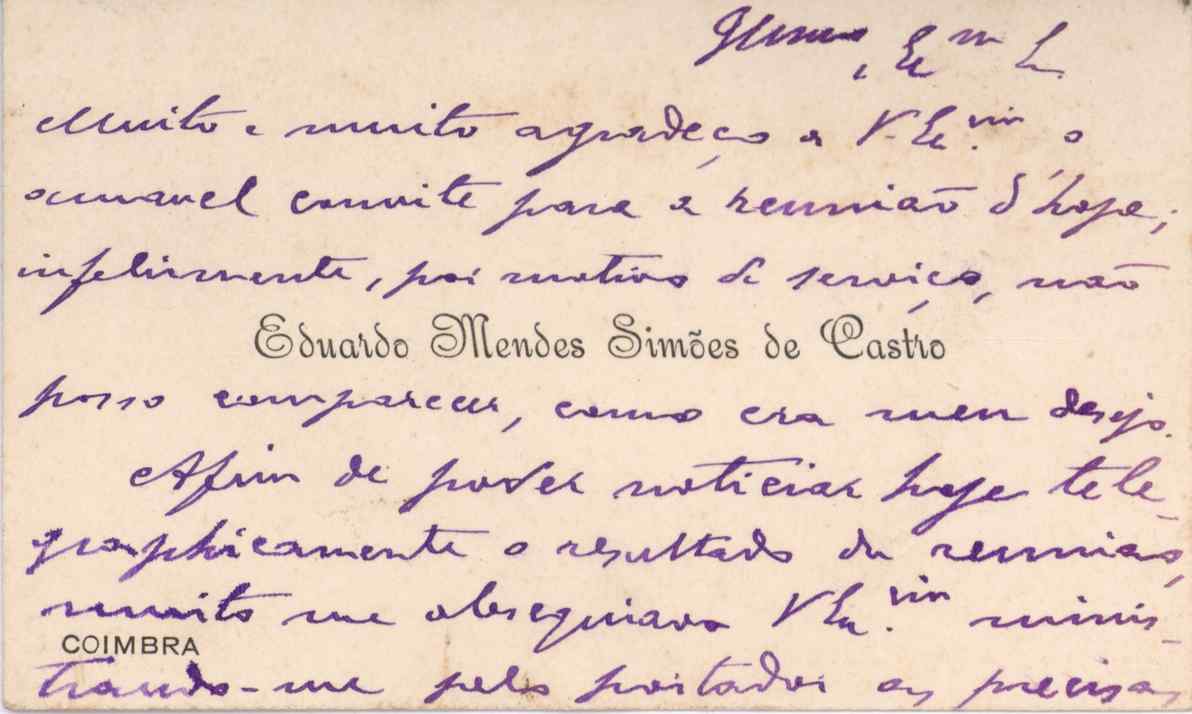 Illmo, Exm S.
Muito e muito agradeço a V. Ex.cia o
amavel convite para a reunião d'hoje;
infelizmente, por motivo de serviço, não
Eduardo Mendes Simões de Castro
posso comparecer, como era meu desejo.
Afim de poder noticiar hoje tele-
graphicamente o resultado da reunião,
muito me obsequiava V Ex.cia minis-
COIMBRA
trando-me pelo portador as precisas